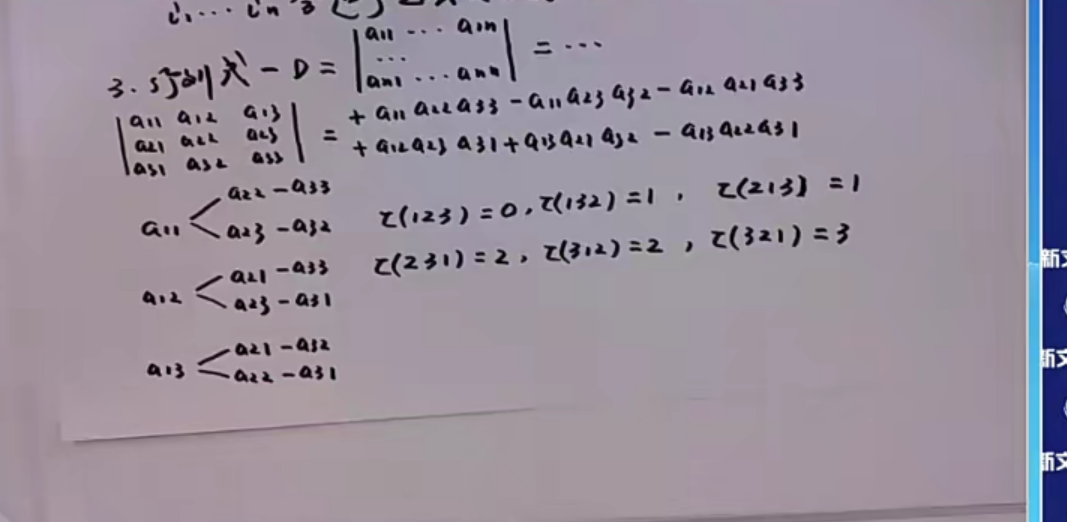 i₁ ... iₙ
3. 行列式 — D = | a11 ... a1n |
...
| an1 ... ann | = ...
| a11 a12 a13 |
| a21 a22 a23 |
| a31 a32 a33 | = + a11 a22 a33 - a11 a23 a32 - a12 a21 a33
+ a12 a23 a31 + a13 a21 a32 - a13 a22 a31
a11 < a22 - a33
a23 - a32
τ(123) = 0, τ(132) = 1, τ(213) = 1
τ(231) = 2, τ(312) = 2, τ(321) = 3
a12 < a21 - a33
a23 - a31
a13 < a21 - a32
a22 - a31
新文
新文
新文